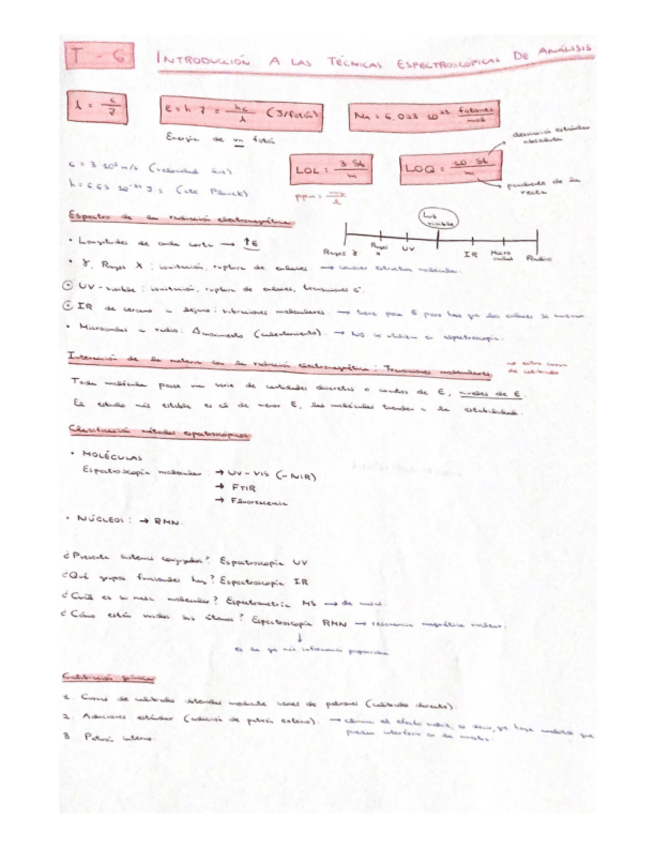 T - 6 INTRODUCCIÓN A LAS TÉCNICAS ESPECTROSCÓPICAS DE ANÁLISIS
λ = c/ν
E = h · ν = hc/λ (J/fotón)
NA = 6,023 · 10²³ fotones/mol
Energía de un fotón
desviación estándar absoluta
c = 3 · 10⁸ m/s (velocidad luz)
LOL = 3 Sb/m
LOQ = 10 Sb/m
h = 6,63 · 10⁻³⁴ J·s (cte Planck)
pendiente de la recta
Espectro de la radiación electromagnética
Luz visible
Rayos γ Rayos X UV IR Micro Radio
• Longitudes de onda corta → ↑E
• γ, Rayos X: ionización, ruptura de enlaces
UV-visible: ionización, ruptura de enlaces, transiciones e⁻
IR de cercano a lejano: vibraciones moleculares.
• Microondas a radio: → No se utilizan en espectroscopía.
Interacción de la materia con la radiación electromagnética: Transiciones moleculares
Toda molécula posee una serie de cantidades discretas o cuantos de E, niveles de E.
El estado más estable es el de menor E, las moléculas tienden a la estabilidad.
Clasificación métodos espectroscópicos
• MOLÉCULAS
Espectroscopía molecular → UV-VIS (-NIR)
→ FTIR
→ Fluorescencia
• NÚCLEOS: → RMN.
¿Presenta sistemas conjugados? Espectroscopía UV
¿Qué grupos funcionales hay? Espectroscopía IR
¿Cuál es su masa molecular? Espectrometría MS → de masas
¿Cómo están unidos sus átomos? Espectroscopía RMN → resonancia magnética nuclear.
es la que más información proporciona
Calibración química
1. Curvas de calibrado obtenidas mediante series de patrones (calibrado directo).
2. Adiciones estándar (adición de patrón externo).
3. Patrón interno.